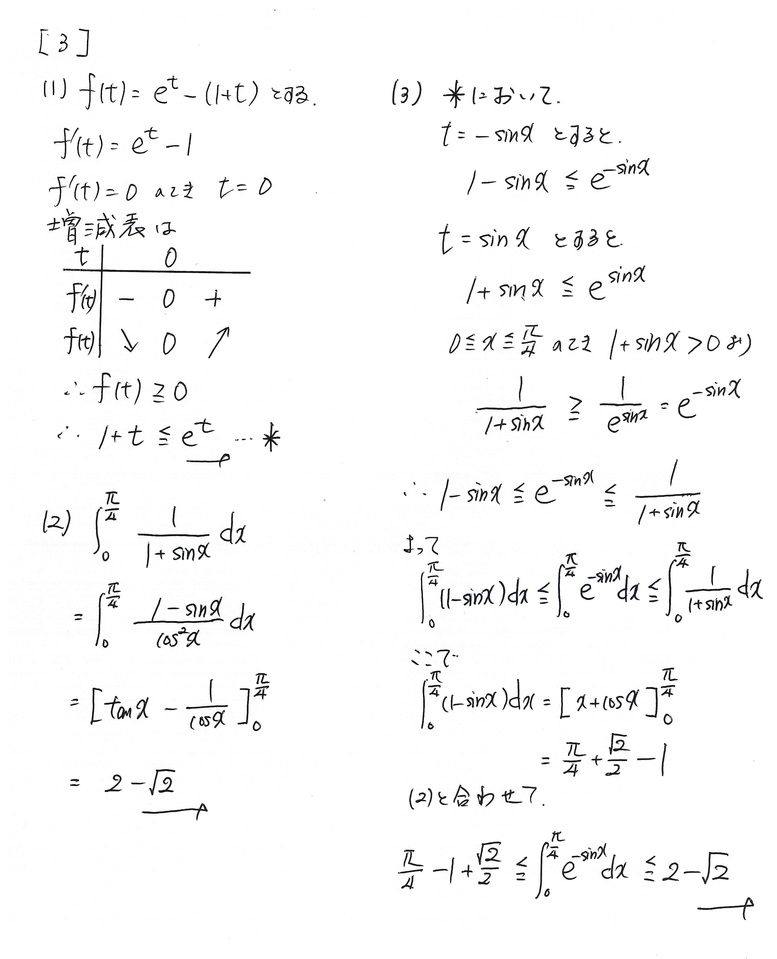 [3]
(1) f(t) = e^t - (1+t) とする.
f'(t) = e^t - 1
f'(t) = 0 のとき t = 0
増減表は
t | 0
f'(t) | - 0 +
f(t) | ↘ 0 ↗
∴ f(t) ≧ 0
∴ 1+t ≦ e^t … *
(2) ∫_0^{π/4} 1/(1+sinx) dx
= ∫_0^{π/4} (1-sinx)/(cos²x) dx
= [tanx - 1/cosx]_0^{π/4}
= 2-√2
(3) *において.
t = -sinx とすると.
1-sinx ≦ e^{-sinx}
t = sinx とすると.
1+sinx ≦ e^{sinx}
0≦x≦π/4 のとき 1+sinx>0 より
1/(1+sinx) ≧ 1/e^{sinx} = e^{-sinx}
∴ 1-sinx ≦ e^{-sinx} ≦ 1/(1+sinx)
よって
∫_0^{π/4} (1-sinx)dx ≦ ∫_0^{π/4} e^{-sinx}dx ≦ ∫_0^{π/4} 1/(1+sinx) dx
ここで
∫_0^{π/4} (1-sinx)dx = [x+cosx]_0^{π/4}
= π/4 + √2/2 - 1
(2)と合わせて.
π/4 - 1 + √2/2 ≦ ∫_0^{π/4} e^{-sinx}dx ≦ 2-√2